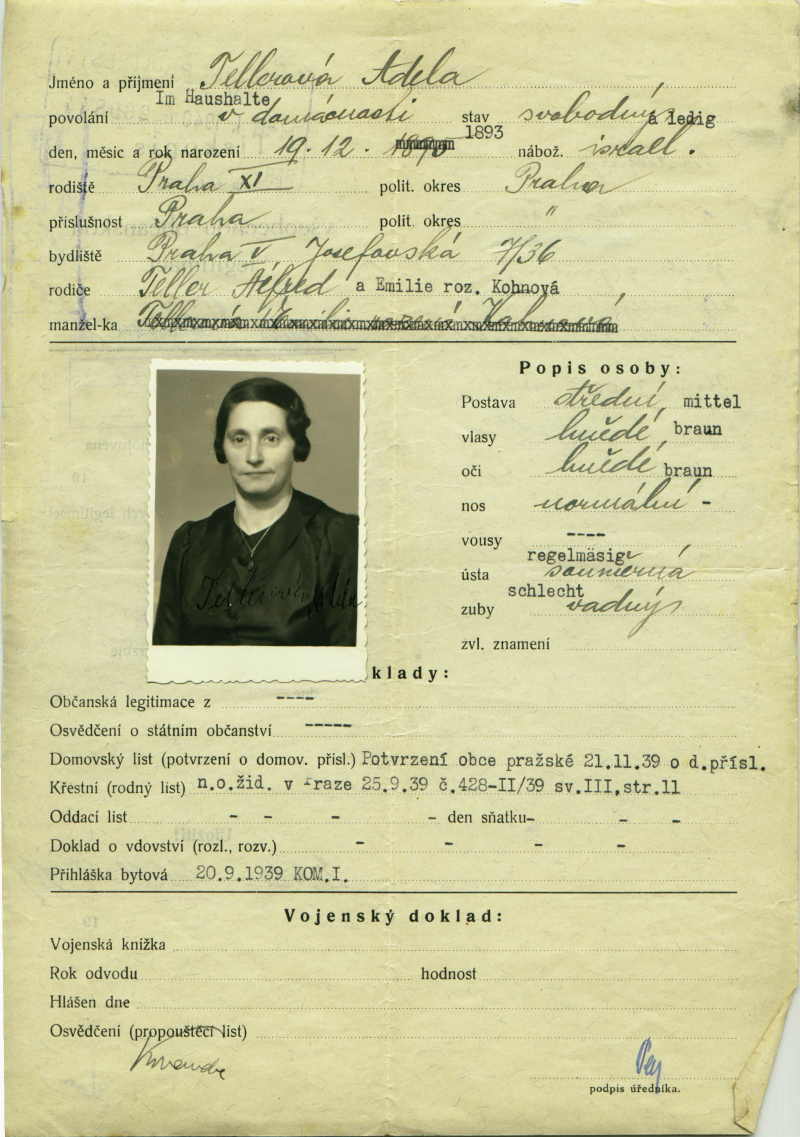 Jméno a příjmení Tellerová Adela
Im Haushalte
povolání v domácnosti stav svobodný, a ledig
1893
den, měsíc a rok narození 19. 12. 1890 nábož. israel.
rodiště Praha XI polit. okres Praha
příslušnost Praha polit. okres "
bydliště Praha V, Josefovská 7/36
rodiče Teller Alfred a Emilie roz. Kohnová
manžel-ka
Popis osoby:
Postava střední, mittel
vlasy hnědé, braun
oči hnědé braun
nos normální -
vousy ----
regelmäsig
ústa souměrná
schlecht
zuby vadný
zvl. znamení
Tellerová Adela
klady:
Občanská legitimace z ----
Osvědčení o státním občanství -----
Domovský list (potvrzení o domov. přísl.) Potvrzení obce pražské 21.11.39 o d.přísl.
Křestní (rodný list) n.o.žid. v Praze 25.9.39 č.428-II/39 sv.III,str.11
Oddací list - - - - den sňatku- - -
Doklad o vdovství (rozl., rozv.) - - - -
Přihláška bytová 20.9.1939 KOM.I.
Vojenský doklad:
Vojenská knížka
Rok odvodu hodnost
Hlášen dne
Osvědčení (propouštěcí list)
podpis úředníka.